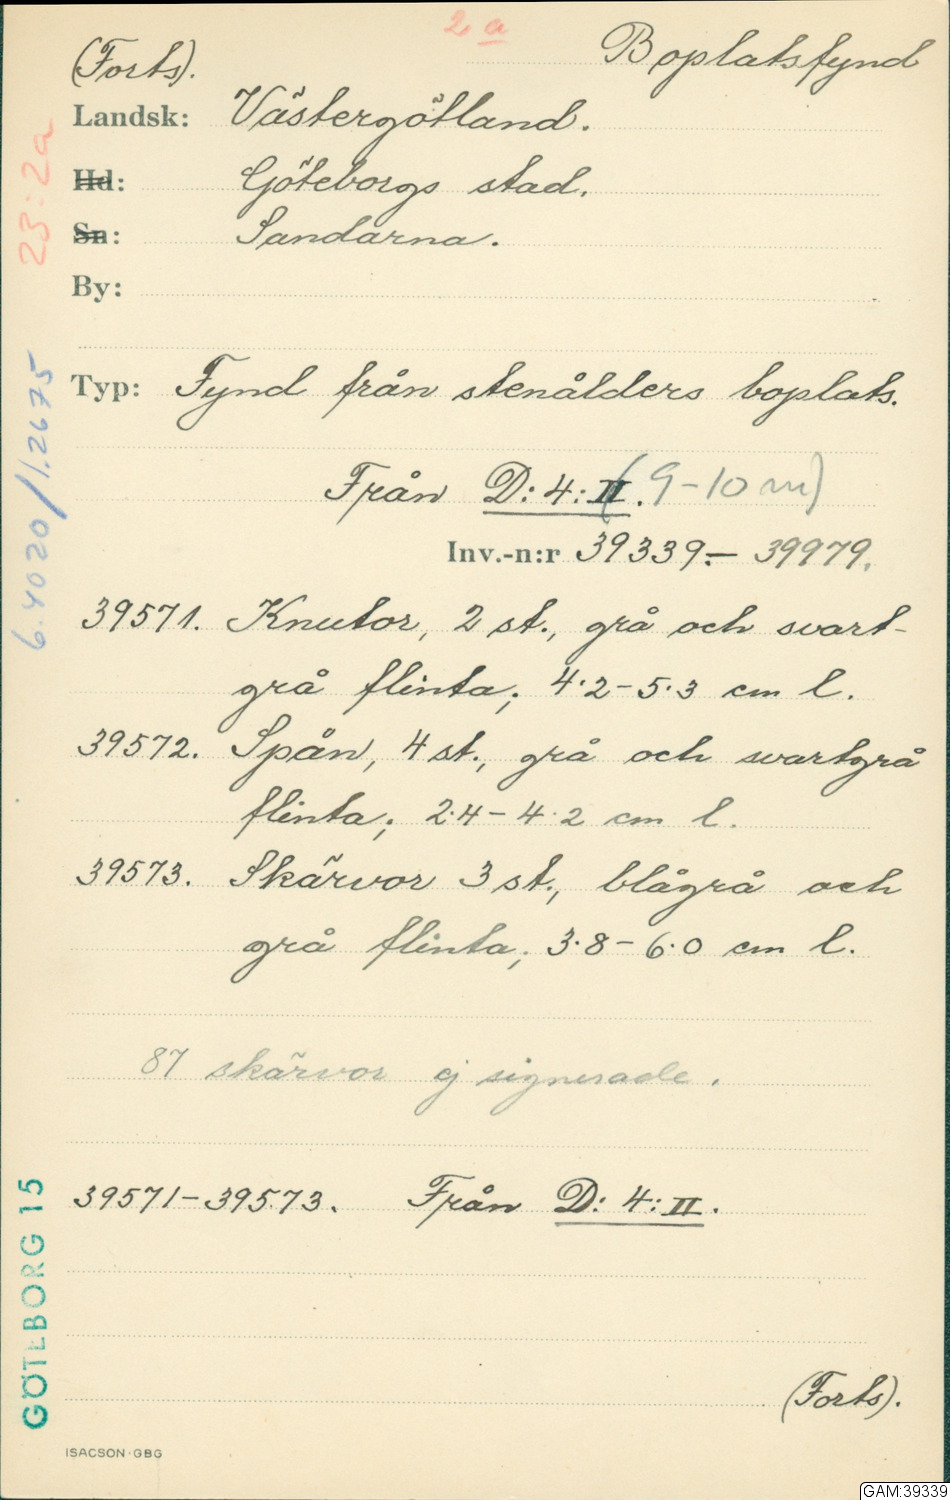 2 a
Boplatsfynd
(Forts).
Landsk: Västergötland.
Hd: Göteborgs stad.
Sn: Sandarna.
By:
Typ: Fynd från stenålders boplats.
Från D: 4: II. (9-10 m)
Inv.-n:r 39339.- 39979.
39571. Knutor, 2 st., grå och svart-
grå flinta; 4.2-5.3 cm l.
39572. Spån, 4 st., grå och svartgrå
flinta; 2.4-4.2 cm l.
39573. Skärvor 3 st., blågrå och
grå flinta; 3.8-6.0 cm l.
87 skärvor ej signerade.
39571-39573. Från D: 4: II.
(Forts).
23:2a
6.4020/1.2675
GÖTEBORG 15
ISACSON·GBG
GAM:39339